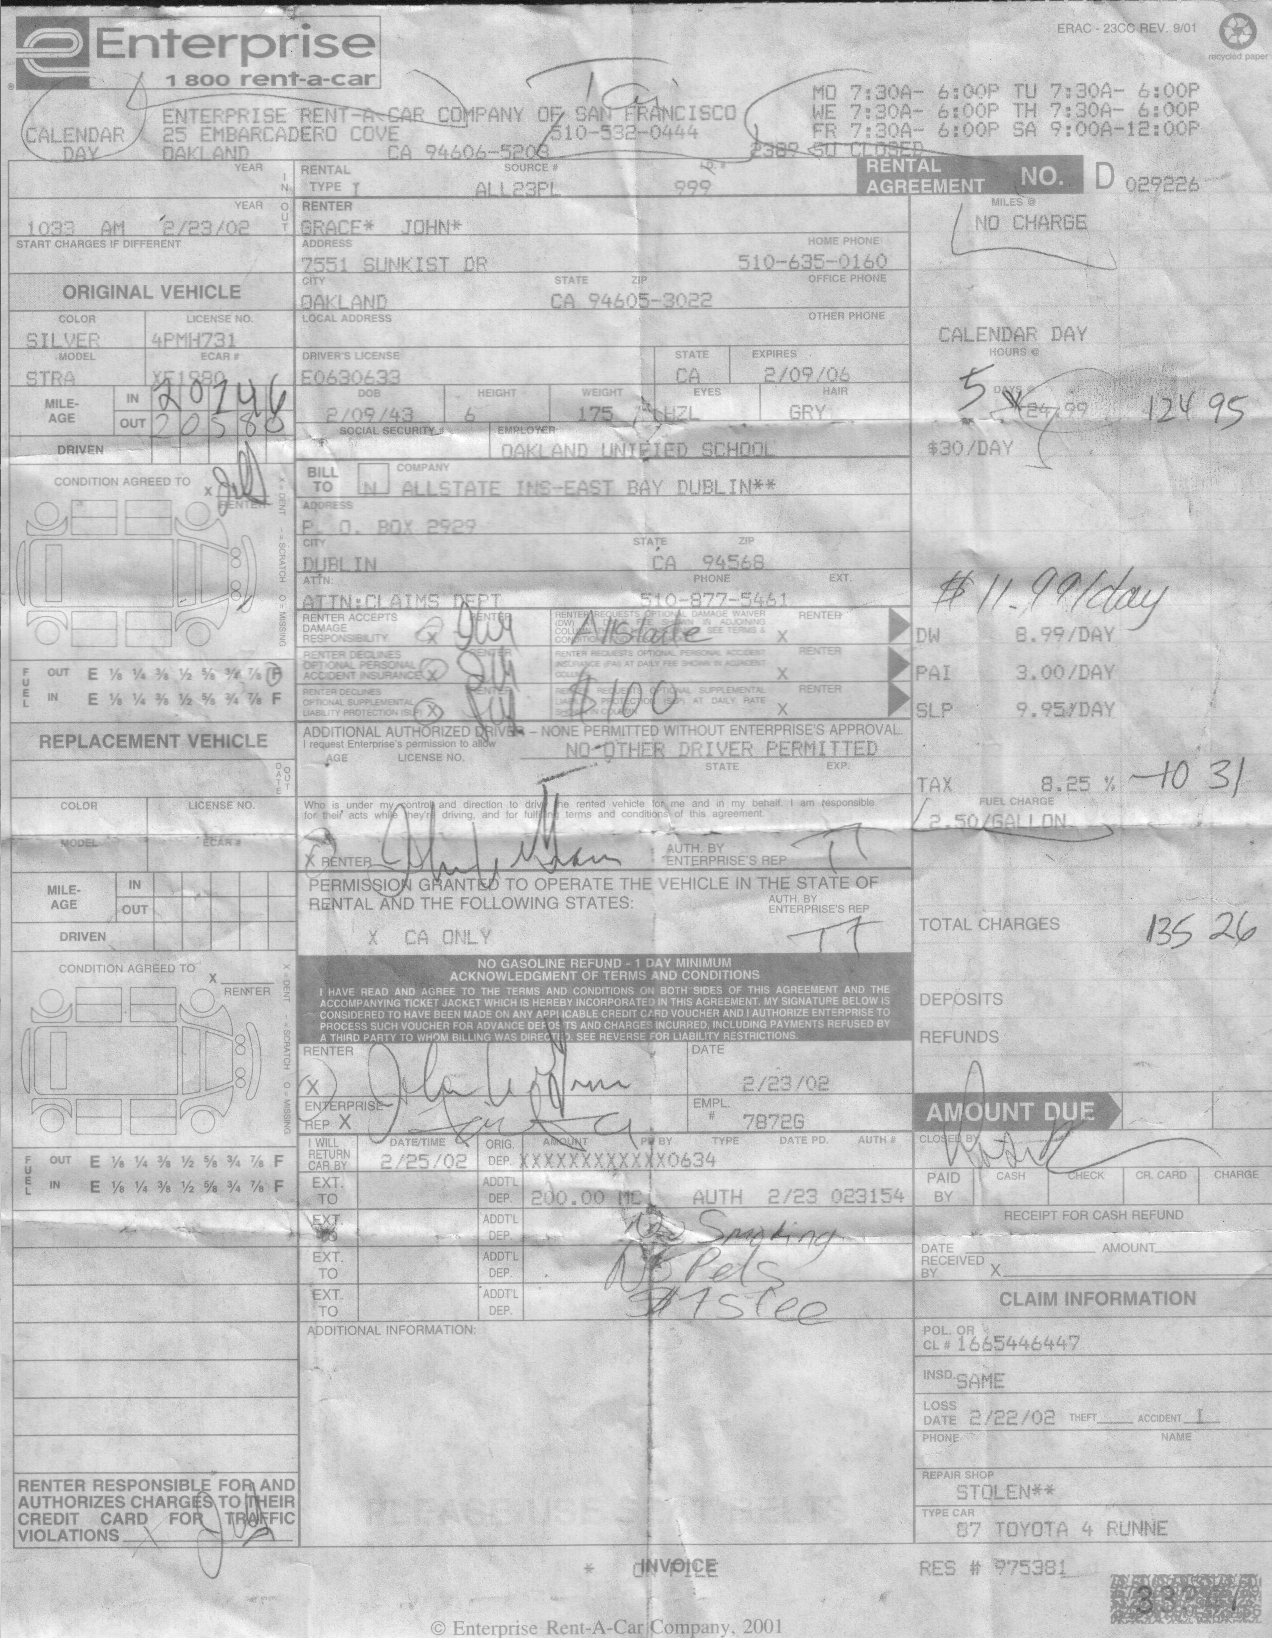 Enterprise
1 800 rent-a-car
ERAC - 23CC REV. 9/01
recycled paper
CALENDAR DAY
ENTERPRISE RENT-A-CAR COMPANY OF SAN FRANCISCO
25 EMBARCADERO COVE 510-532-0444
OAKLAND CA 94606-5208
MO 7:30A- 6:00P TU 7:30A- 6:00P
WE 7:30A- 6:00P TH 7:30A- 6:00P
FR 7:30A- 6:00P SA 9:00A-12:00P
2389 SU CLOSED
RENTAL AGREEMENT NO. D 029226
YEAR
IN
RENTAL TYPE I
SOURCE #
ALL23PL
I.D. #
999
YEAR
OUT
1033 AM 2/23/02
START CHARGES IF DIFFERENT
RENTER
GRACE* JOHN*
ADDRESS
HOME PHONE
7551 SUNKIST DR 510-635-0160
CITY STATE ZIP OFFICE PHONE
OAKLAND CA 94605-3022
LOCAL ADDRESS OTHER PHONE
MILES @
NO CHARGE
CALENDAR DAY
HOURS @
5 DAYS @ 24.99 124 95
$30/DAY
ORIGINAL VEHICLE
COLOR LICENSE NO.
SILVER 4PMH731
MODEL ECAR #
STRA XF1980
MILE-AGE
IN 20746
OUT 20580
DRIVEN
DRIVER'S LICENSE STATE EXPIRES
E0630633 CA 2/09/06
DOB HEIGHT WEIGHT EYES HAIR
2/09/43 6 175 HZL GRY
SOCIAL SECURITY # EMPLOYER
OAKLAND UNIFIED SCHOOL
CONDITION AGREED TO
X
RENTER
X = DENT - = SCRATCH O = MISSING
BILL TO N
COMPANY
ALLSTATE INS-EAST BAY DUBLIN**
ADDRESS
P. O. BOX 2929
CITY STATE ZIP
DUBLIN CA 94568
ATTN: PHONE EXT.
ATTN:CLAIMS DEPT 510-877-5461
RENTER ACCEPTS DAMAGE RESPONSIBILITY X RENTER
Allstate
RENTER X
RENTER DECLINES OPTIONAL PERSONAL ACCIDENT INSURANCE X RENTER
RENTER X
RENTER DECLINES OPTIONAL SUPPLEMENTAL LIABILITY PROTECTION (SLP) X RENTER
$100
RENTER X
$11.99/day
DW 8.99/DAY
PAI 3.00/DAY
SLP 9.95/DAY
TAX 8.25 % 10 31
FUEL CHARGE
2.50/GALLON
FUEL
OUT E 1/8 1/4 3/8 1/2 5/8 3/4 7/8 F
IN E 1/8 1/4 3/8 1/2 5/8 3/4 7/8 F
ADDITIONAL AUTHORIZED DRIVER - NONE PERMITTED WITHOUT ENTERPRISE'S APPROVAL.
I request Enterprise's permission to allow
NO OTHER DRIVER PERMITTED
AGE LICENSE NO. STATE EXP.
Who is under my control and direction to drive the rented vehicle for me and in my behalf. I am responsible
for their acts while they're driving, and for fulfilling terms and conditions of this agreement.
X RENTER
AUTH. BY ENTERPRISE'S REP TT
REPLACEMENT VEHICLE
DATE OUT
COLOR LICENSE NO.
MODEL ECAR #
MILE-AGE
IN
OUT
DRIVEN
PERMISSION GRANTED TO OPERATE THE VEHICLE IN THE STATE OF
RENTAL AND THE FOLLOWING STATES:
AUTH. BY ENTERPRISE'S REP TT
X CA ONLY
TOTAL CHARGES 135 26
DEPOSITS
REFUNDS
CONDITION AGREED TO
X
RENTER
X = DENT - = SCRATCH O = MISSING
NO GASOLINE REFUND - 1 DAY MINIMUM
ACKNOWLEDGMENT OF TERMS AND CONDITIONS
I HAVE READ AND AGREE TO THE TERMS AND CONDITIONS ON BOTH SIDES OF THIS AGREEMENT AND THE
ACCOMPANYING TICKET JACKET WHICH IS HEREBY INCORPORATED IN THIS AGREEMENT. MY SIGNATURE BELOW IS
CONSIDERED TO HAVE BEEN MADE ON ANY APPLICABLE CREDIT CARD VOUCHER AND I AUTHORIZE ENTERPRISE TO
PROCESS SUCH VOUCHER FOR ADVANCE DEPOSITS AND CHARGES INCURRED, INCLUDING PAYMENTS REFUSED BY
A THIRD PARTY TO WHOM BILLING WAS DIRECTED. SEE REVERSE FOR LIABILITY RESTRICTIONS.
RENTER
X
DATE
2/23/02
ENTERPRISE REP X
EMPL. # 7872G
AMOUNT DUE
CLOSED BY
PAID BY CASH CHECK CR. CARD CHARGE
I WILL RETURN CAR BY
DATE/TIME
2/25/02
ORIG. DEP.
AMOUNT PD BY TYPE DATE PD. AUTH #
XXXXXXXXXXXX0634
EXT. TO ADDT'L DEP. 200.00 MC AUTH 2/23 023154
EXT. TO ADDT'L DEP. No Smoking
EXT. TO ADDT'L DEP. No Pets
EXT. TO ADDT'L DEP.
FUEL
OUT E 1/8 1/4 3/8 1/2 5/8 3/4 7/8 F
IN E 1/8 1/4 3/8 1/2 5/8 3/4 7/8 F
RECEIPT FOR CASH REFUND
DATE AMOUNT
RECEIVED BY X
ADDITIONAL INFORMATION:
CLAIM INFORMATION
POL. OR CL # 1665446447
INSD. SAME
LOSS DATE 2/22/02 THEFT ACCIDENT I
PHONE NAME
REPAIR SHOP
STOLEN**
TYPE CAR
87 TOYOTA 4 RUNNE
RENTER RESPONSIBLE FOR AND
AUTHORIZES CHARGES TO THEIR
CREDIT CARD FOR TRAFFIC
VIOLATIONS X
* ON FILE
INVOICE
RES # 975381
© Enterprise Rent-A-Car Company, 2001